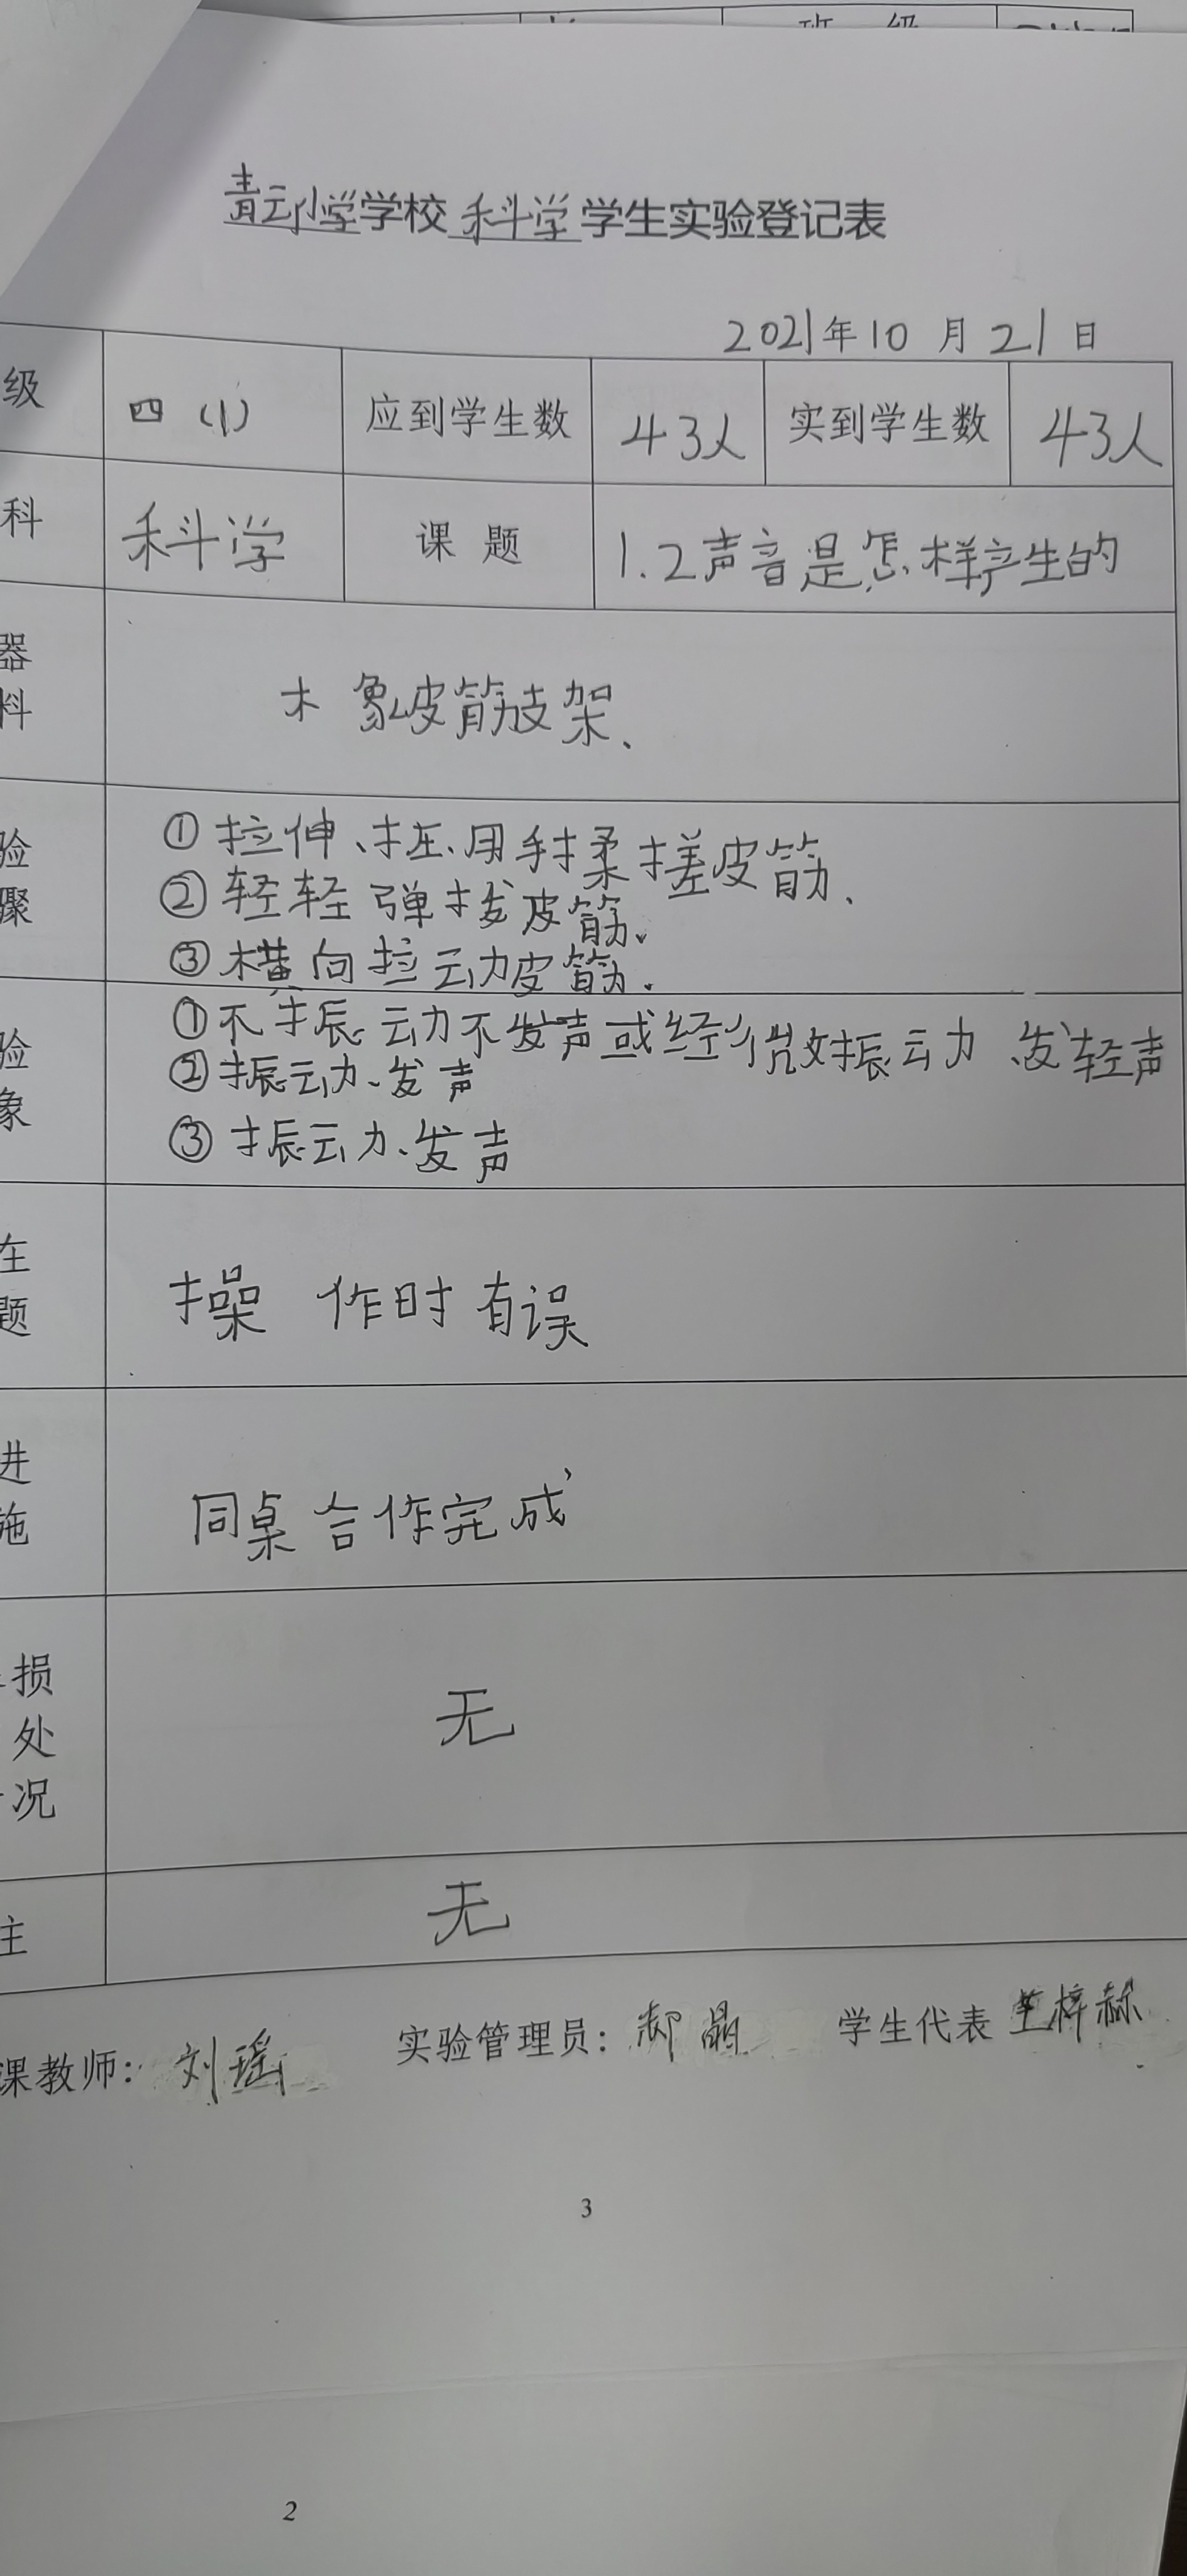 班 级
青云小学学校 科学 学生实验登记表
2021年10月21日
级 四(1) 应到学生数 43人 实到学生数 43人
科 科学 课题 1.2声音是怎样产生的
器
料
木 象皮筋支架、
验
骤
①拉伸、扗、用手揉搓皮筋、
②轻轻弹拨皮筋、
③横向拉动皮筋.
验
象
①不振动不发声或轻微振动、发轻声
②振动、发声
③振动、发声
在
题
操作时有误
进
施
同桌合作完成
损
处
况
无
主 无
课教师: 刘瑶 实验管理员: 郝晶 学生代表 王梓赫
3
2